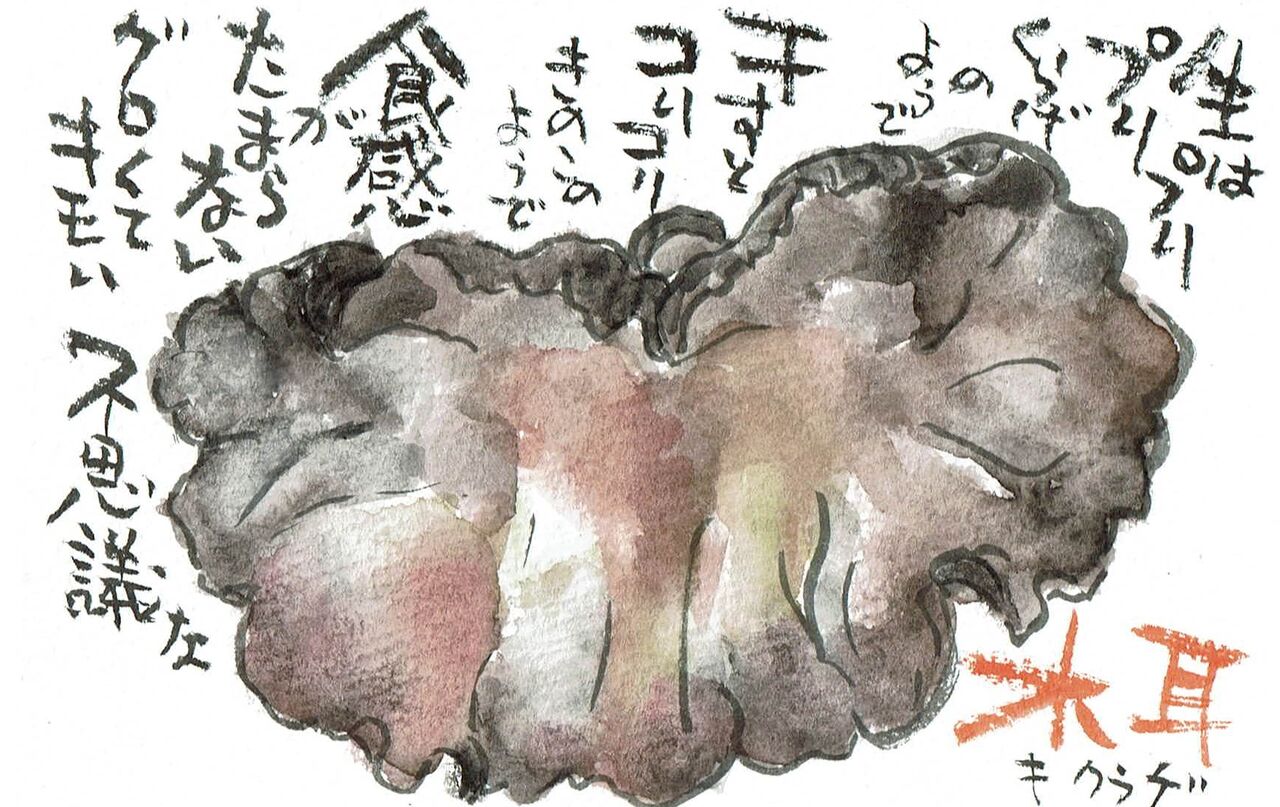 生は
プリプリ
くらげ
の
ようで
干すと
コリコリ
きのこの
ようで
食感
が
たまら
ない
グロくて
キモい
不思議な
木耳
キクラゲ